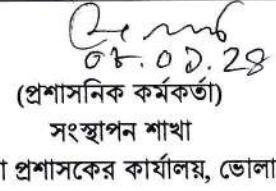 ০৮.০১.২৪
(প্রশাসনিক কর্মকর্তা)
সংস্থাপন শাখা
প্রশাসকের কার্যালয়, ভোলা